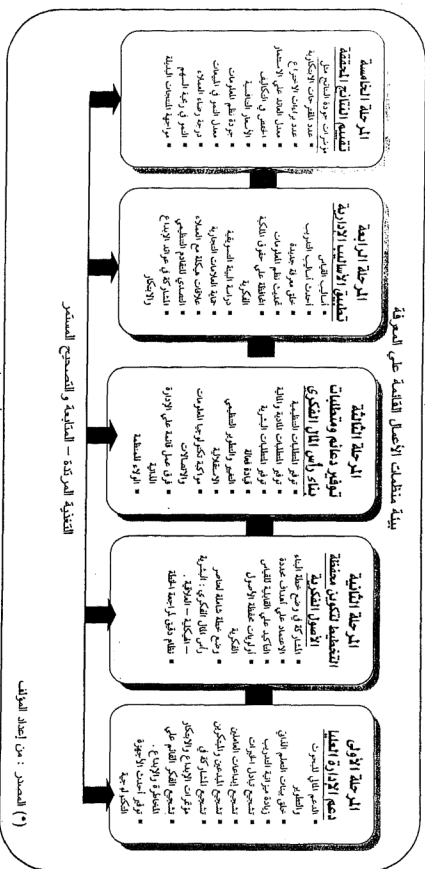 بيئة منظمات الأعمال القائمة على المعرفة
المرحلة الأولى
دعم الإدارة العليا
▪ الدعم المالي للبحوث
والتطوير
▪ خلق بيئات التعلم الذاتي
▪ زيادة ميزانية التدريب
▪ تشجيع تبادل الخبرات
▪ تشجيع إبداعات العاملين
▪ تشجيع المبدعين والمبتكرين
▪ تشجيع المشاركة في
مؤتمرات الإبداع والابتكار
▪ تشجيع الفكر القائم على
المخاطرة والإبداع.
▪ توفير أحدث الأجهزة
التكنولوجية
المرحلة الثانية
التخطيط لتكوين محفظة
الأصول الفكرية
▪ المشاركة في وضع خطة البناء
▪ الاعتماد على أهداف محددة
▪ التأكيد على القابلية للقياس
▪ أولويات محفظة الأصول
الفكرية
▪ وضع خطة شاملة لعناصر
رأس المال الفكري : البشرية
– الهيكلية – العلاقية .
▪ نظام دقيق لمراجعة الخطة
المرحلة الثالثة
توفير دعائم ومتطلبات
بناء رأس المال الفكري
▪ توفير المتطلبات التنظيمية
▪ توفير المتطلبات المادية والمالية
▪ توفير المتطلبات البشرية
▪ قيادة فعالة
▪ التغيير والتطوير التنظيمي
▪ الاستقلالية
▪ مواكبة تكنولوجيا المعلومات
والاتصالات
▪ فرق عمل قائمة على الإدارة
الذاتية
▪ الولاء للمنظمة
المرحلة الرابعة
تطبيق الأساليب الادارية
▪ أساليب القياس
▪ أحدث أساليب التدريب
▪ خلق معرفة جديدة
▪ تحديث نظم المعلومات
▪ المحافظة على حقوق الملكية
الفكرية
▪ دراسة البيئة التسويقية
▪ حماية العلامات التجارية
▪ علاقات هيكلة مع العملاء
▪ التصدي للتقادم التنظيمي
▪ المشاركة في عوائد الإبداع
والابتكار
المرحلة الخامسة
تقييم النتائج المحققة
مؤشرات جودة النتائج مثل
▪ عدد المقترحات الابتكارية
▪ عدد براءات الاختراع
▪ معدل العائد على الاستثمار
▪ الخفض في التكاليف
▪ الأسعار التنافسية
▪ جودة نظم المعلومات
▪ معدل النمو في المبيعات
▪ درجة رضاء العملاء
▪ النمو في ربحية السهم
▪ مواجهة المنتجات البديلة
التغذية المرتدة – المتابعة والتصحيح المستمر
(*) المصدر : من إعداد المؤلف